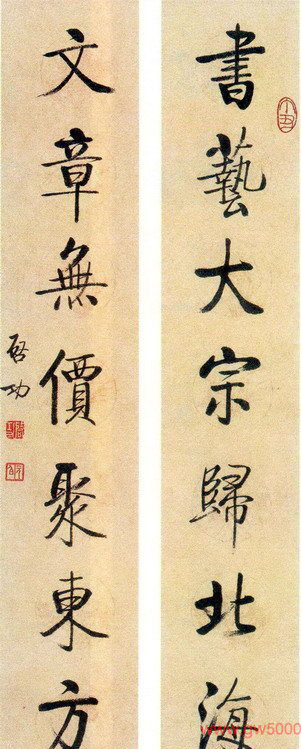 書藝大宗歸北海
文章無價聚東方
啓功
www.gw5000